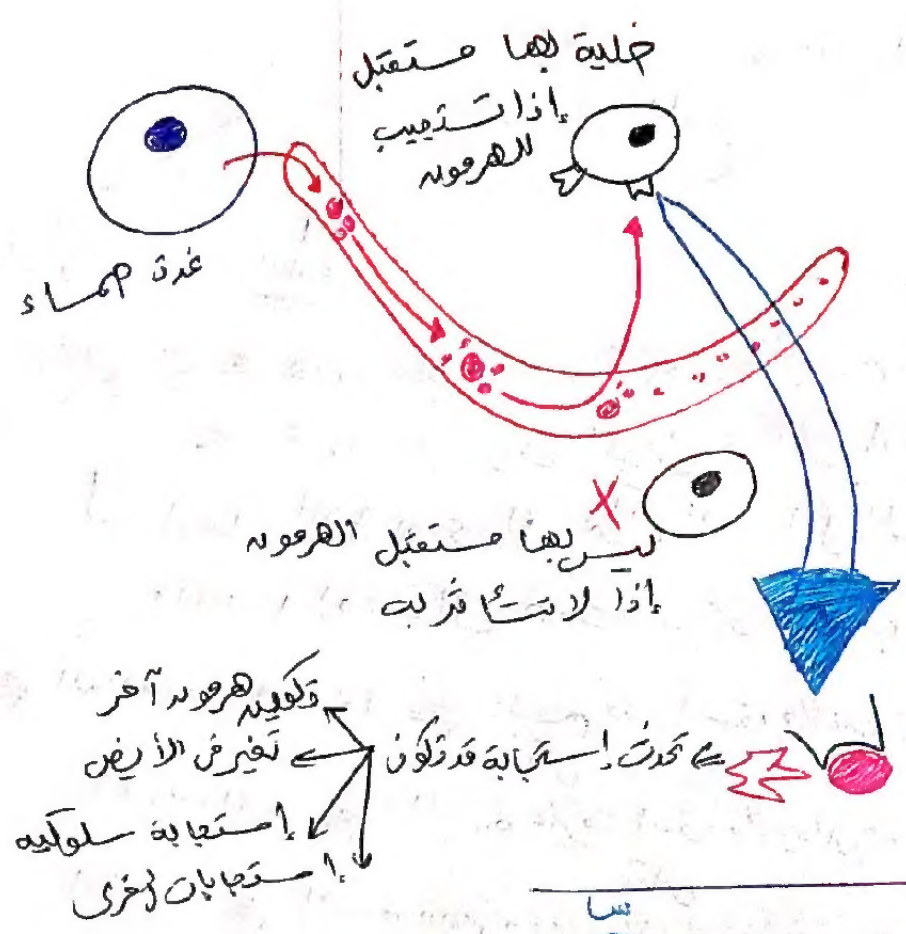 خلية بها مستقبل
إذا تستجيب
للهرمون
غدة صماء
ليس بها مستقبل الهرمون
إذا لا تتأثر به
تحدث إستجابة قد تكون
تكوين هرمون آخر
تغير في الأيض
إستجابة سلوكيه
إستجابات أخرى